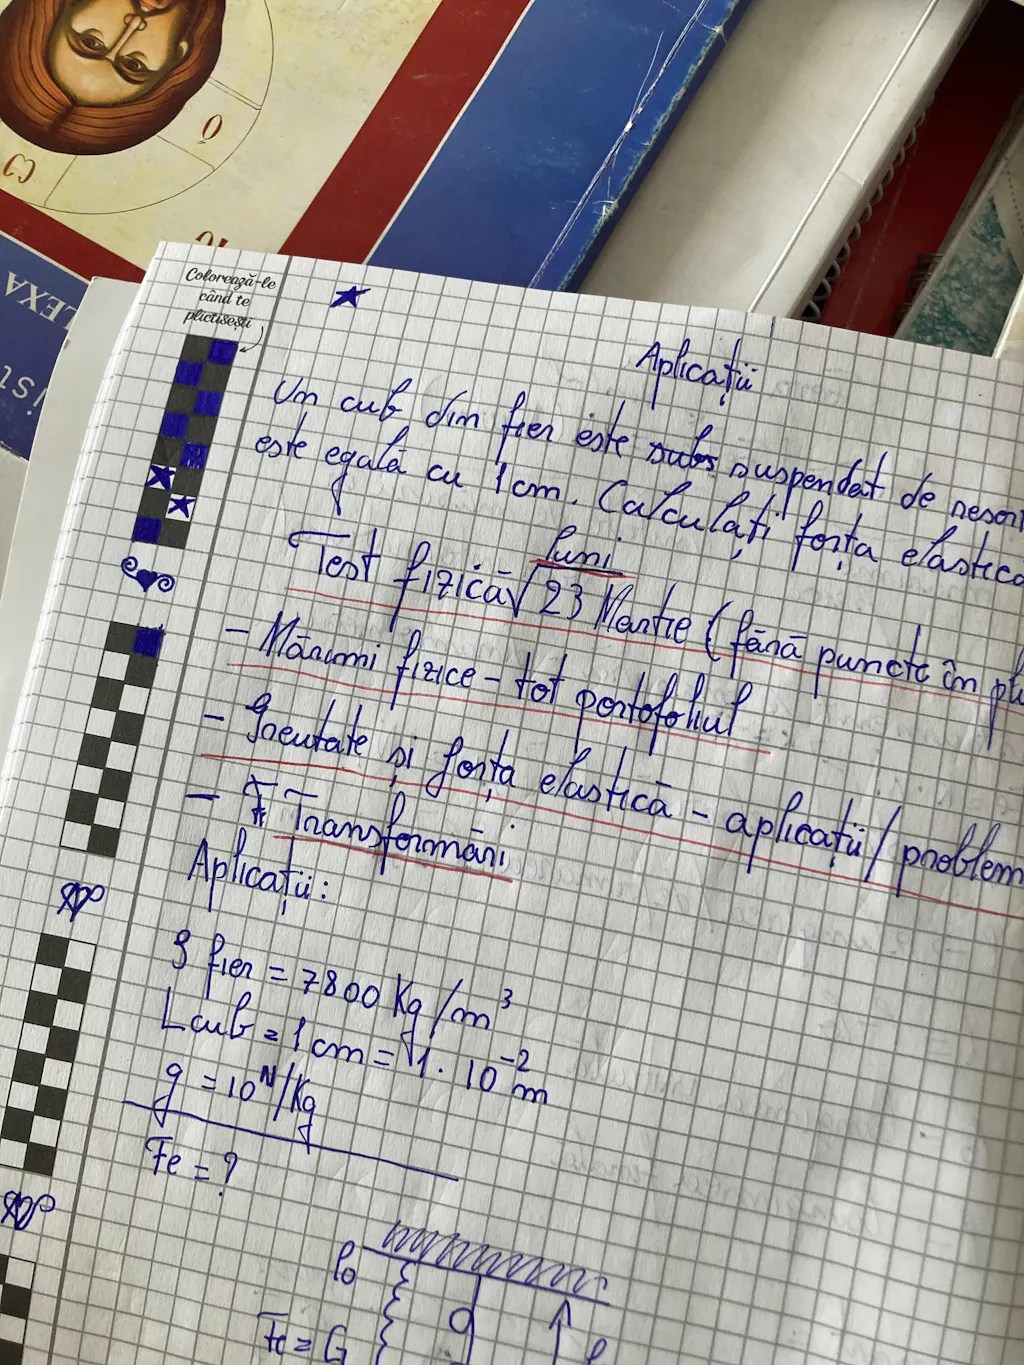 Colorează-le
când te
plictisești
Aplicații
Un cub din fier este suspendat de
este egală cu 1cm. Calculați forța
luni
Test fizică √ 23 Martie (fără puncte în
- Mărimi fizice - tot portofoliul
- Greutate și forța elastică - aplicații/
- Transformări
Aplicații:
ρ fier = 7800 Kg/m³
Lcub = 1cm = 1·10⁻²m
g = 10 N/Kg
Fe = ?
l₀
Fe = G
G